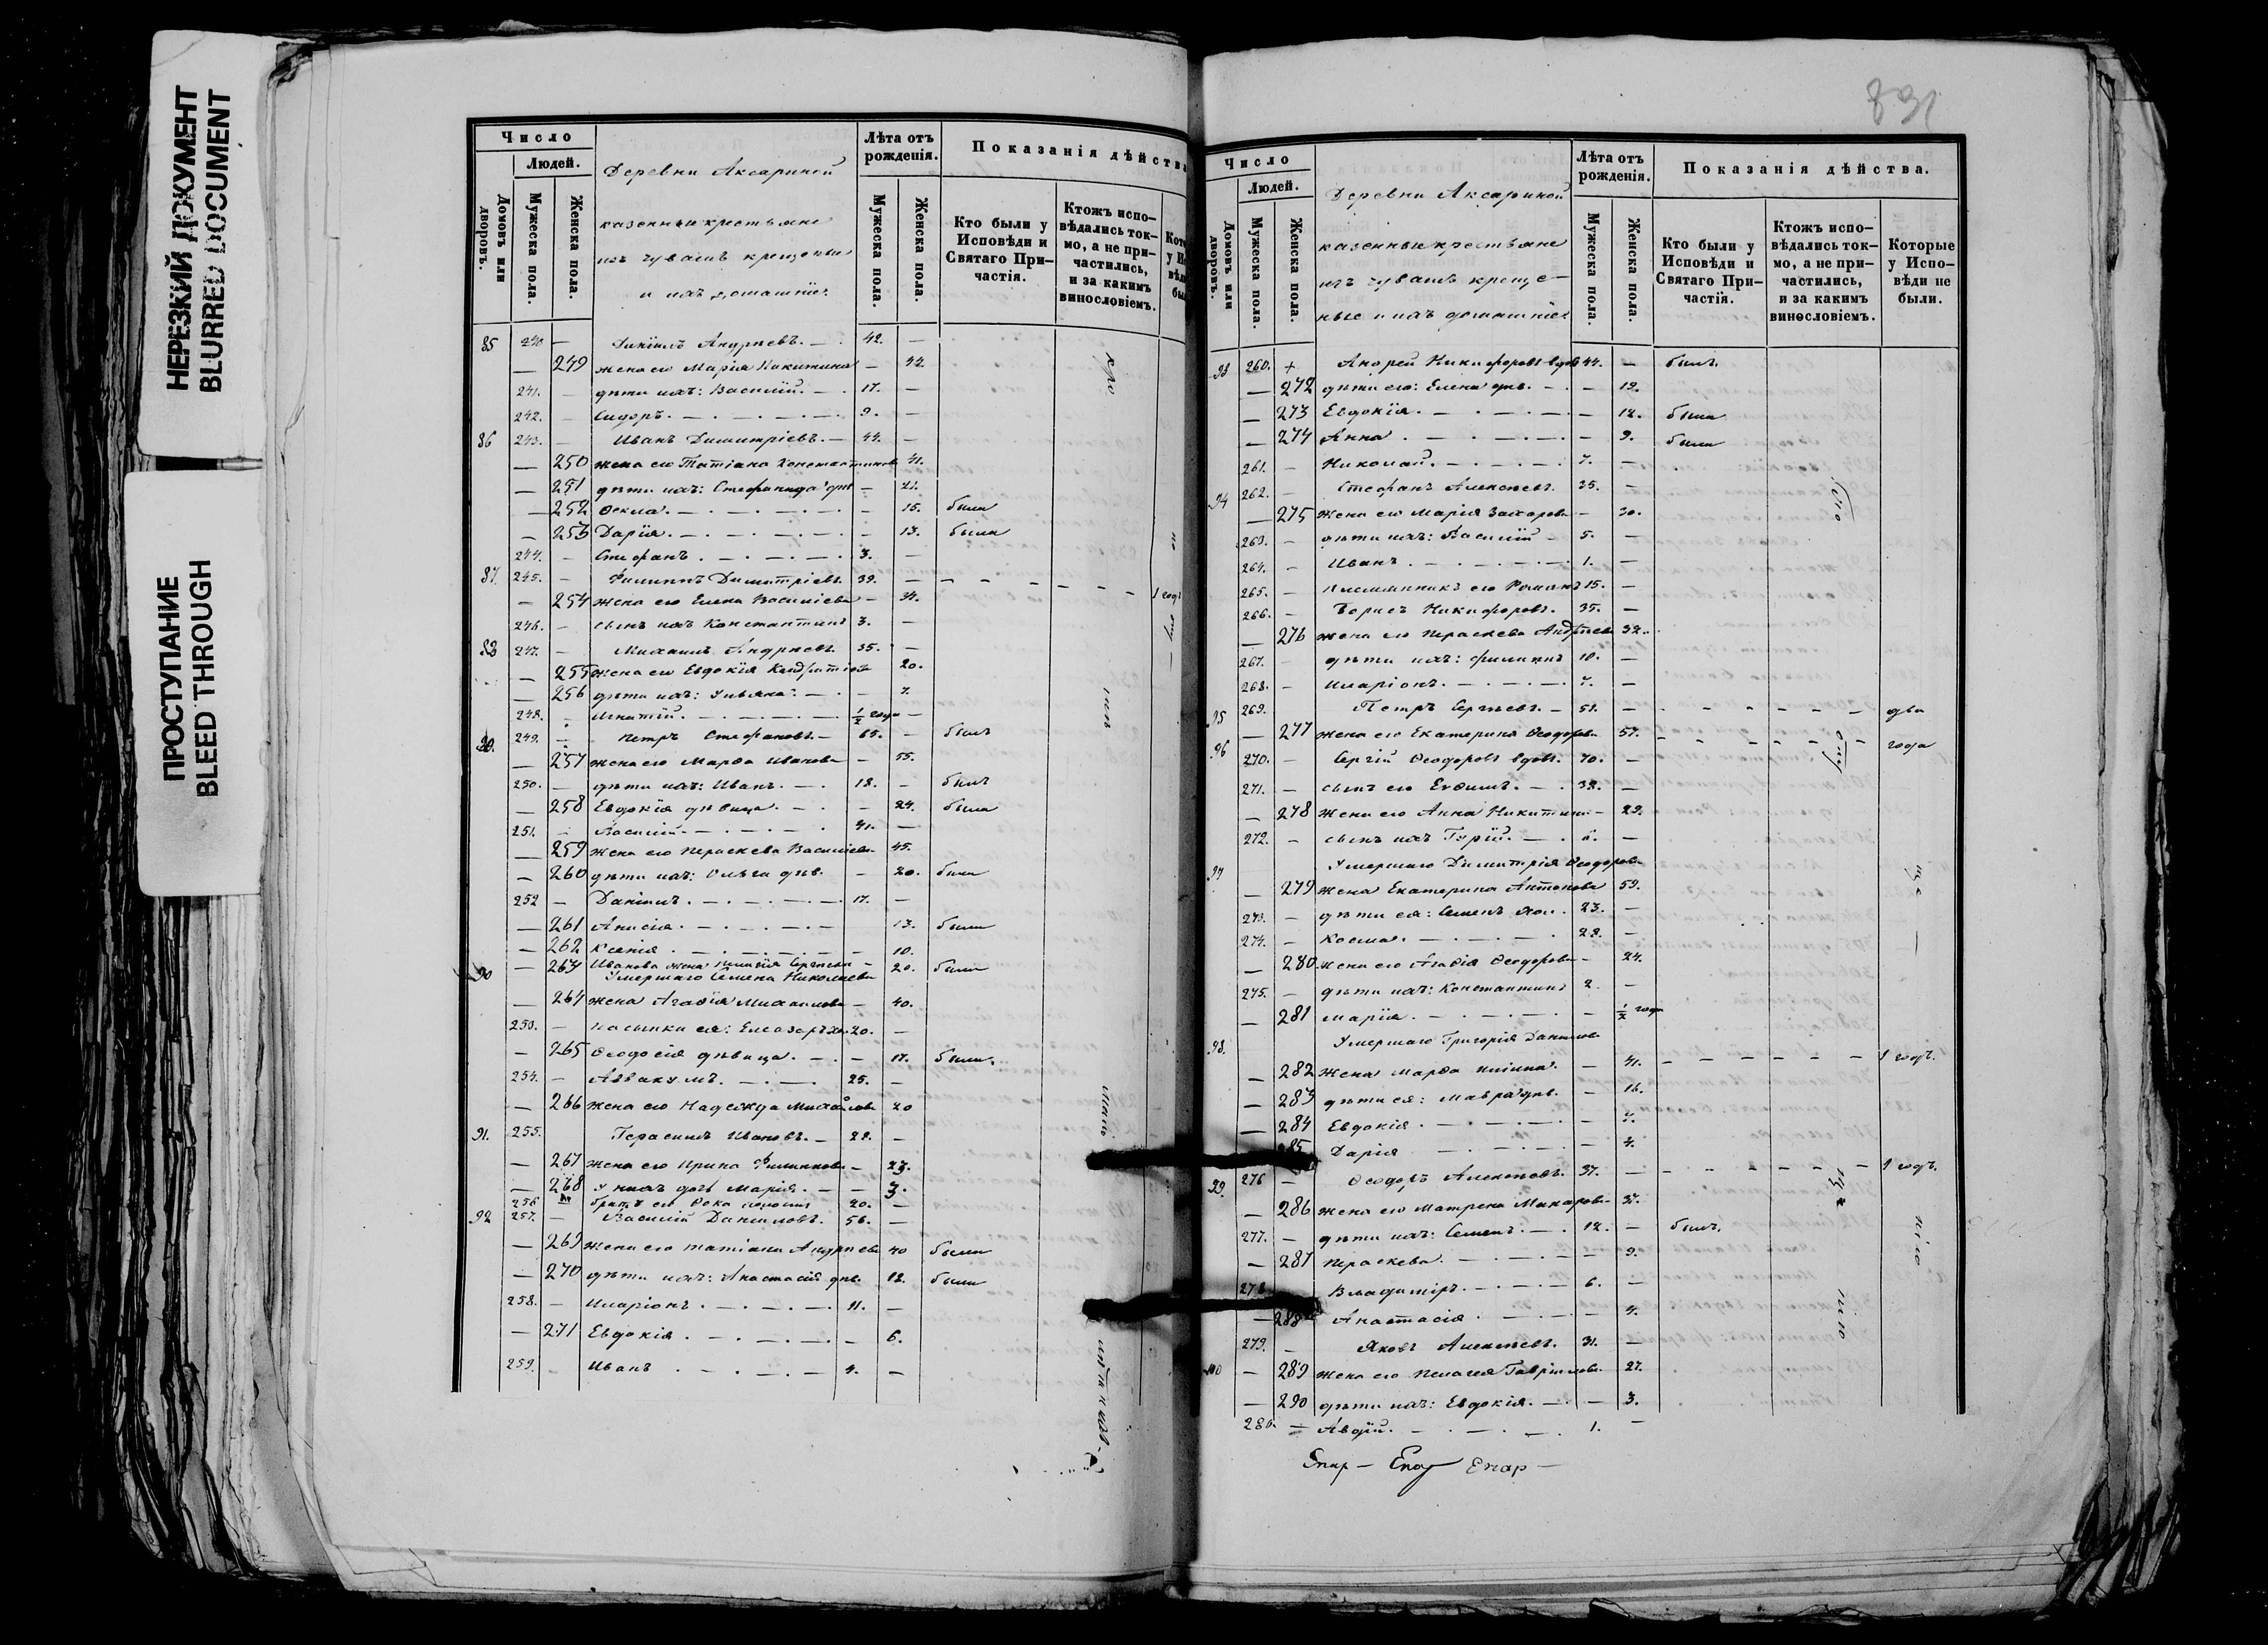 НЕРЕЗКИЙ ДОКУМЕНТ
BLURRED DOCUMENT
ПРОСТУПАНИЕ
BLEED THROUGH
Число
Людей.
Домовъ или дворовъ.
Мужеска пола.
Женска пола.
Деревни Аксариной
казенные крестьяне
изъ чувашъ крещеные
и ихъ домашніе
Лѣта отъ рожденія.
Мужеска пола.
Женска пола.
Показанія дѣйства
Кто были у Исповѣди и Святаго При-частія.
Ктожъ испо-вѣдались ток-мо, а не при-частились, и за какимъ винословіемъ.
85 240 — Даніилъ Андреевъ. — 42. —
— 249 жена его Марія Никитина — 42.
241. — дѣти ихъ: Василій. — 17. —
242. — Сидоръ. — 9. —
86 243. — Иванъ Димитріевъ. — 44. —
— 250 жена его Татіана Константинова 41.
— 251 дѣти ихъ: Стефанида дѣв — 21.
— 252 Ѳекла. — 15. была
— 253 Дарія. — 13. была
244. — Стефанъ. 3. —
87. 245. — Филиппъ Димитріевъ 39. —
— 254 жена его Елена Василіева — 34. 1 годъ
246. — сынъ ихъ Константинъ 3. —
88 247. — Михаилъ Андреевъ 35. —
— 255 жена его Евдокія 20.
— 256 дѣти ихъ: Ульяна. — 7.
248. — Игнатій. — 1/2 года —
249. — Петръ Стефановъ. — 65. — былъ
— 257 жена его Марѳа Иванова — 55.
250. — дѣти ихъ: Иванъ. — 18. — былъ
— 258 Евдокія дѣвица. — 24. была
251. — Василій. — 41. —
— 259 жена его Параскева Василіева 45.
— 260 дѣти ихъ: Ольга дѣв. — 20. была
252 — Даніилъ. — 17. —
— 261 Анисія. — 13. была
— 262 Ксенія. — 10.
— 263 Иванова жена Сергѣева — 20. была
90 Умершаго Семена Николаева
— 264 жена Агаѳія Михаилова — 40.
253. — пасынки ея: Елеазаръ хол. 20. —
— 265 Ѳеодосія дѣвица. — 17. была.
254. — Аввакумъ. — 25. —
— 266 жена его Надежда Михайлова 20
91. 255. Герасимъ Ивановъ. — 22. —
— 267 жена его Ирина Филиппова — 23.
— 268 у нихъ дочь Марія. — 3.
256 братъ его Ѳока холостъ 20. —
92 257. — Василій Даниловъ. 56. —
— 269 жена его Татіана Андреева 40 была
— 270 дѣти ихъ: Анастасія дѣв. 12. была
258. — Иларіонъ. — 11. —
— 271 Евдокія. — 6.
259. — Иванъ. — 4. —
Число
Людей.
Домовъ или дворовъ.
Мужеска пола.
Женска пола.
Деревни Аксариной
казенные крестьяне
изъ чувашъ креще-
ные и ихъ домашніе
Лѣта отъ рожденія.
Мужеска пола.
Женска пола.
Показанія дѣйства.
Кто были у Исповѣди и Святаго При-частія.
Ктожъ испо-вѣдались ток-мо, а не при-частились, и за какимъ винословіемъ.
Которые у Испо-вѣди не были.
93 260. + Андрей Никифоровъ вдов 44. — былъ.
— 272 дѣти его: Елена дѣв. — 19.
— 273 Евдокія. — 12. была
— 274 Анна. — 9. была
261. — Николай. — 7. —
94 262. — Стефанъ Алексѣевъ. 35. —
— 275 жена его Марія Захарова — 30.
263. — дѣти ихъ: Василій — 5. —
264. — Иванъ. — 1. —
265. — племянникъ его Романъ 15. —
266. — Борисъ Никифоровъ. 35. —
— 276 жена его Параскева Андреева 32.
267. — дѣти ихъ: Филиппъ 10. —
268. — Иларіонъ. — 7. —
95 269. Петръ Сергѣевъ. — 51. — два
— 277 жена его Екатерина Ѳеодорова 57. года
96 270. — Сергій Ѳеодоровъ вдов. 70. —
271. — сынъ его Евѳимъ. — 32. —
— 278 жена его Анна Никитина — 29.
272. — сынъ ихъ Гурій. —
97 Умершаго Димитрія Ѳеодорова
— 279 жена Екатерина Антонова 59.
273. — дѣти ея: Семенъ хол. 23. —
274. — Косма. — 28. —
— 280 жена его Агаѳія Ѳеодорова — 24.
275. — дѣти ихъ: Константинъ 2. —
— 281 Марія. — 1/2 года
98. Умершаго Григорія Данилова
— 282 жена Марѳа — 41. 1 годъ.
— 283 дѣти ея: Мавра дѣв. — 16.
— 284 Евдокія. — 7.
285 Дарія — 4.
99. 276 — Ѳеодоръ Алексѣевъ. 37. — 1 годъ.
— 286 жена его Матрена Макарова 37.
277. — дѣти ихъ: Семенъ. — 12. — былъ.
— 287 Параскева. — 9.
278. Владиміръ. — 6. —
— 288 Анастасія. — 4.
279. — Яковъ Алексѣевъ. 31. —
100 — 289 жена его Пелагея Гавріилова 27.
— 290 дѣти ихъ: Евдокія. — 3.
280. — Авдій. — 1. —